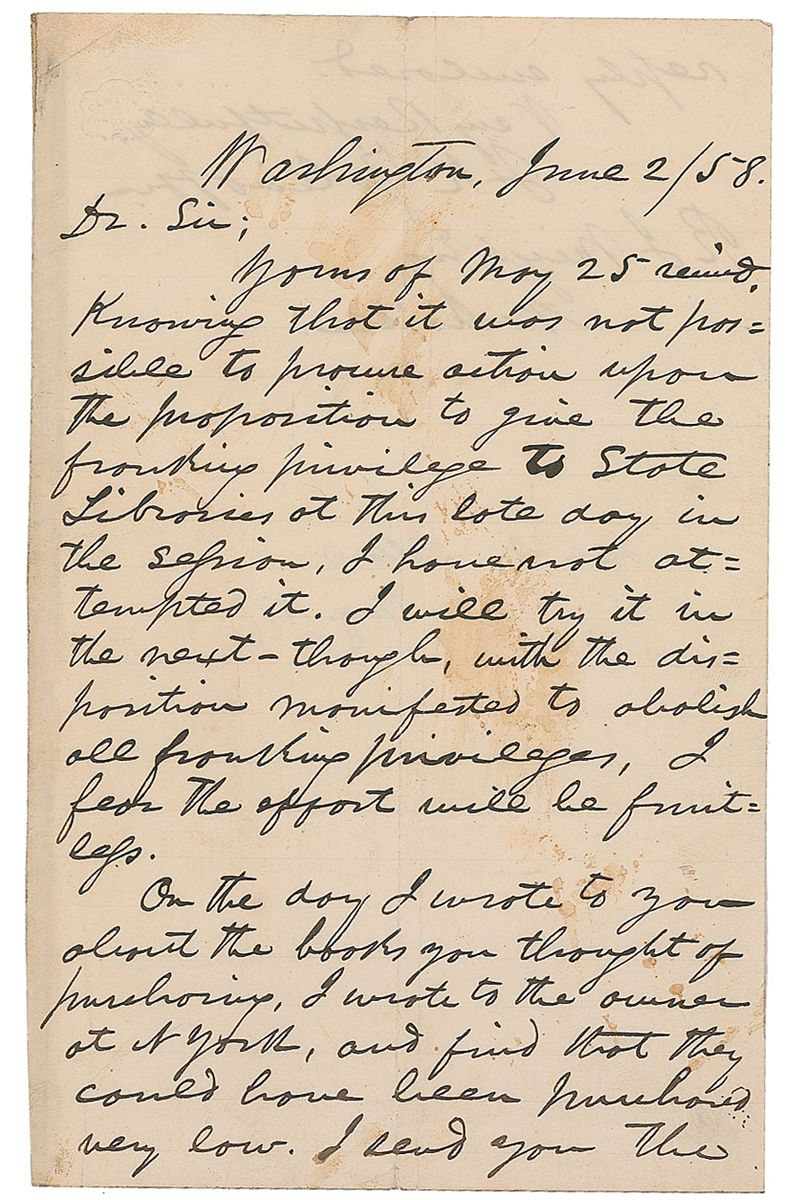 Washington, June 2/58.
Dr. Sir;
Yours of May 25 recived.
Knowing that it was not pos=
sible to procure action upon
the proposition to give the
franking privilege to State
Libraries at this late day in
the session, I have not at=
tempted it. I will try it in
the next – though, with the dis=
position manifested to abolish
all franking privileges, I
fear the effort will be fruit=
less.
On the day I wrote to you
about the books you thought of
purchasing, I wrote to the owner
at N York, and find that they
could have been purchased
very low. I send you the